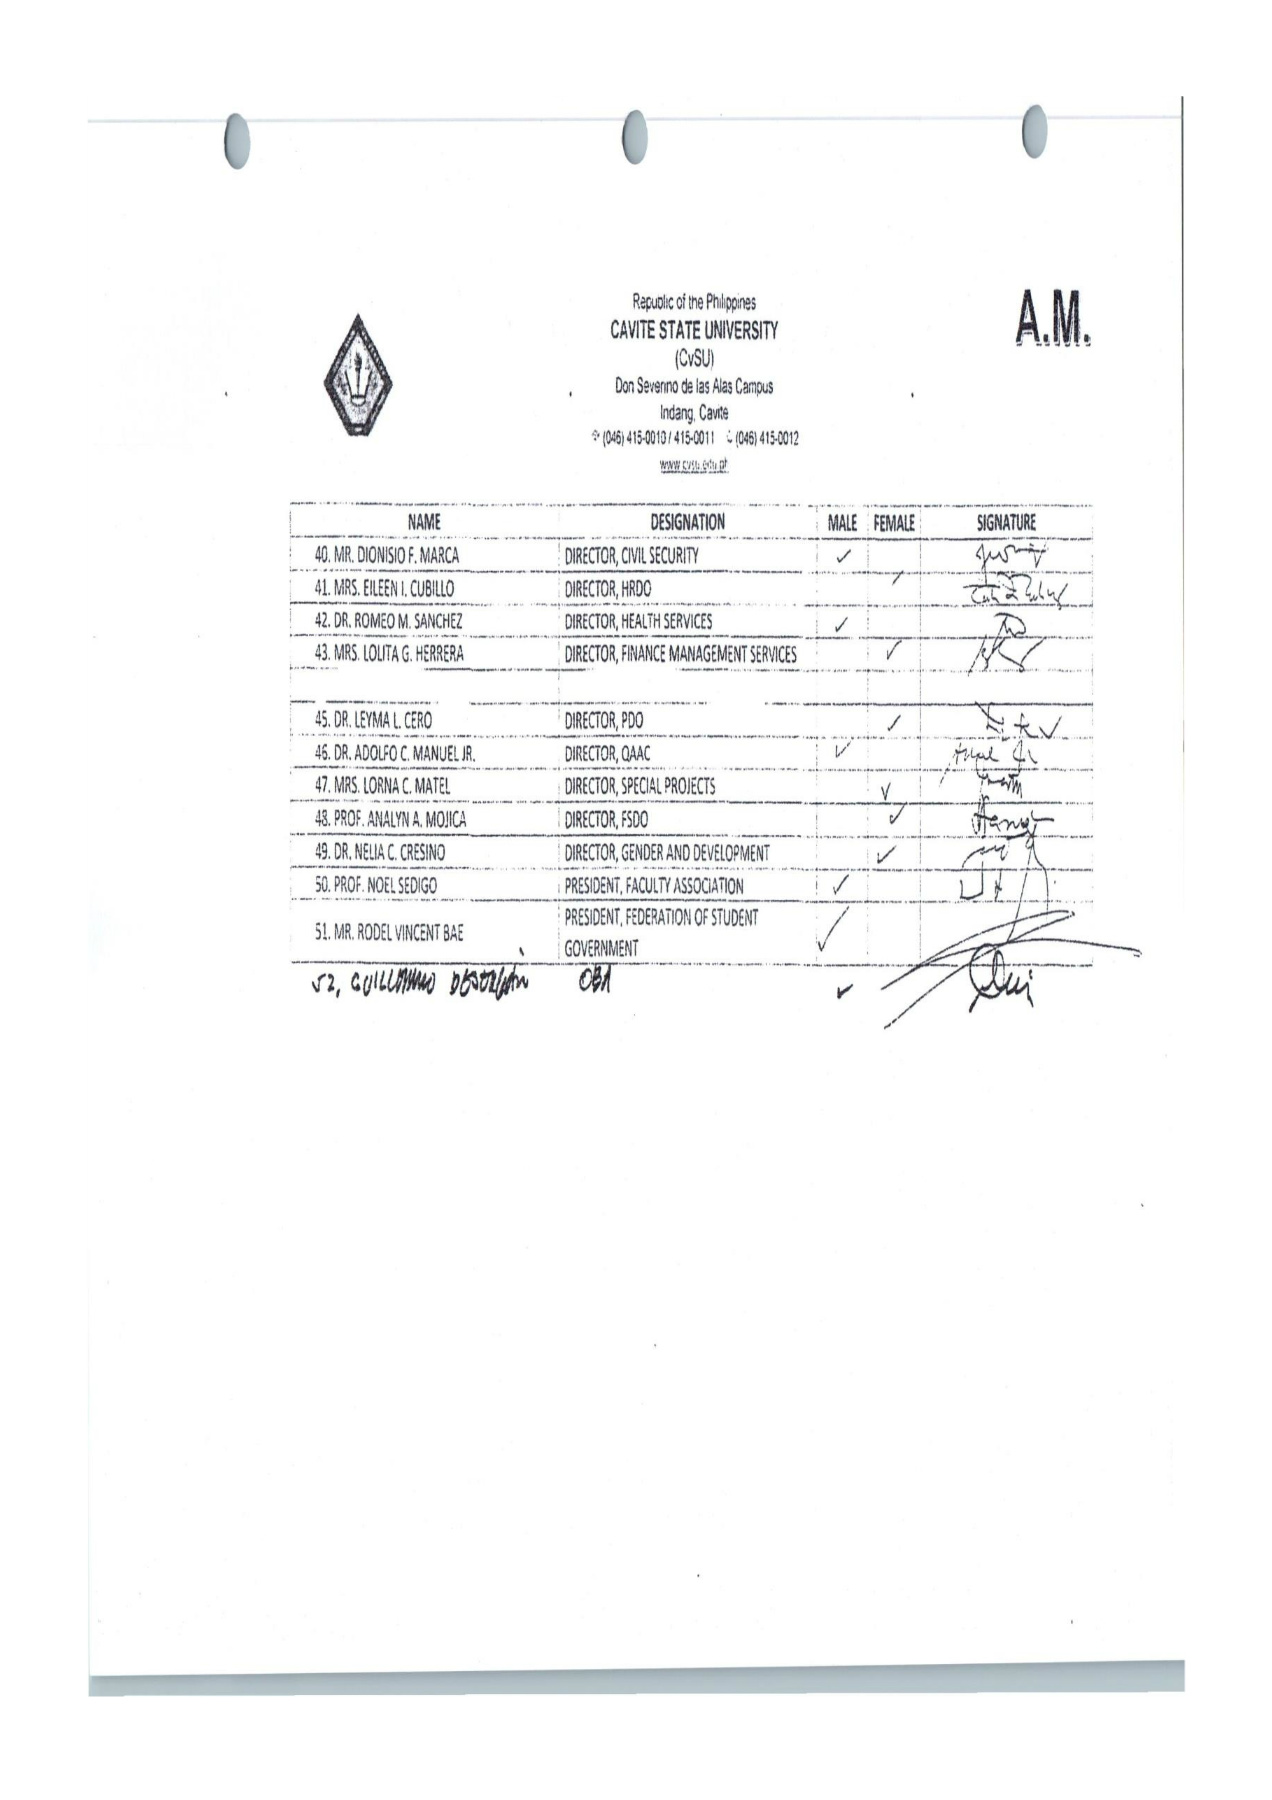 Republic of the Philippines
A.M.
CAVITE STATE UNIVERSITY
(CvSU)
Don Severino de las Alas Campus
Indang, Cavite
(046) 415-0010 / 415-0011 (046) 415-0012
www.cvsu.edu.ph
NAME DESIGNATION MALE FEMALE SIGNATURE
40. MR. DIONISIO F. MARCA DIRECTOR, CIVIL SECURITY ✓
41. MRS. EILEEN I. CUBILLO DIRECTOR, HRDO
42. DR. ROMEO M. SANCHEZ DIRECTOR, HEALTH SERVICES ✓
43. MRS. LOLITA G. HERRERA DIRECTOR, FINANCE MANAGEMENT SERVICES ✓
45. DR. LEYMA L. CERO DIRECTOR, PDO ✓
46. DR. ADOLFO C. MANUEL JR. DIRECTOR, QAAC ✓
47. MRS. LORNA C. MATEL DIRECTOR, SPECIAL PROJECTS ✓
48. PROF. ANALYN A. MOJICA DIRECTOR, FSDO ✓
49. DR. NELIA C. CRESINO DIRECTOR, GENDER AND DEVELOPMENT ✓
50. PROF. NOEL SEDIGO PRESIDENT, FACULTY ASSOCIATION ✓
51. MR. RODEL VINCENT BAE PRESIDENT, FEDERATION OF STUDENT ✓
GOVERNMENT
52, GUILLERMO OBA ✓